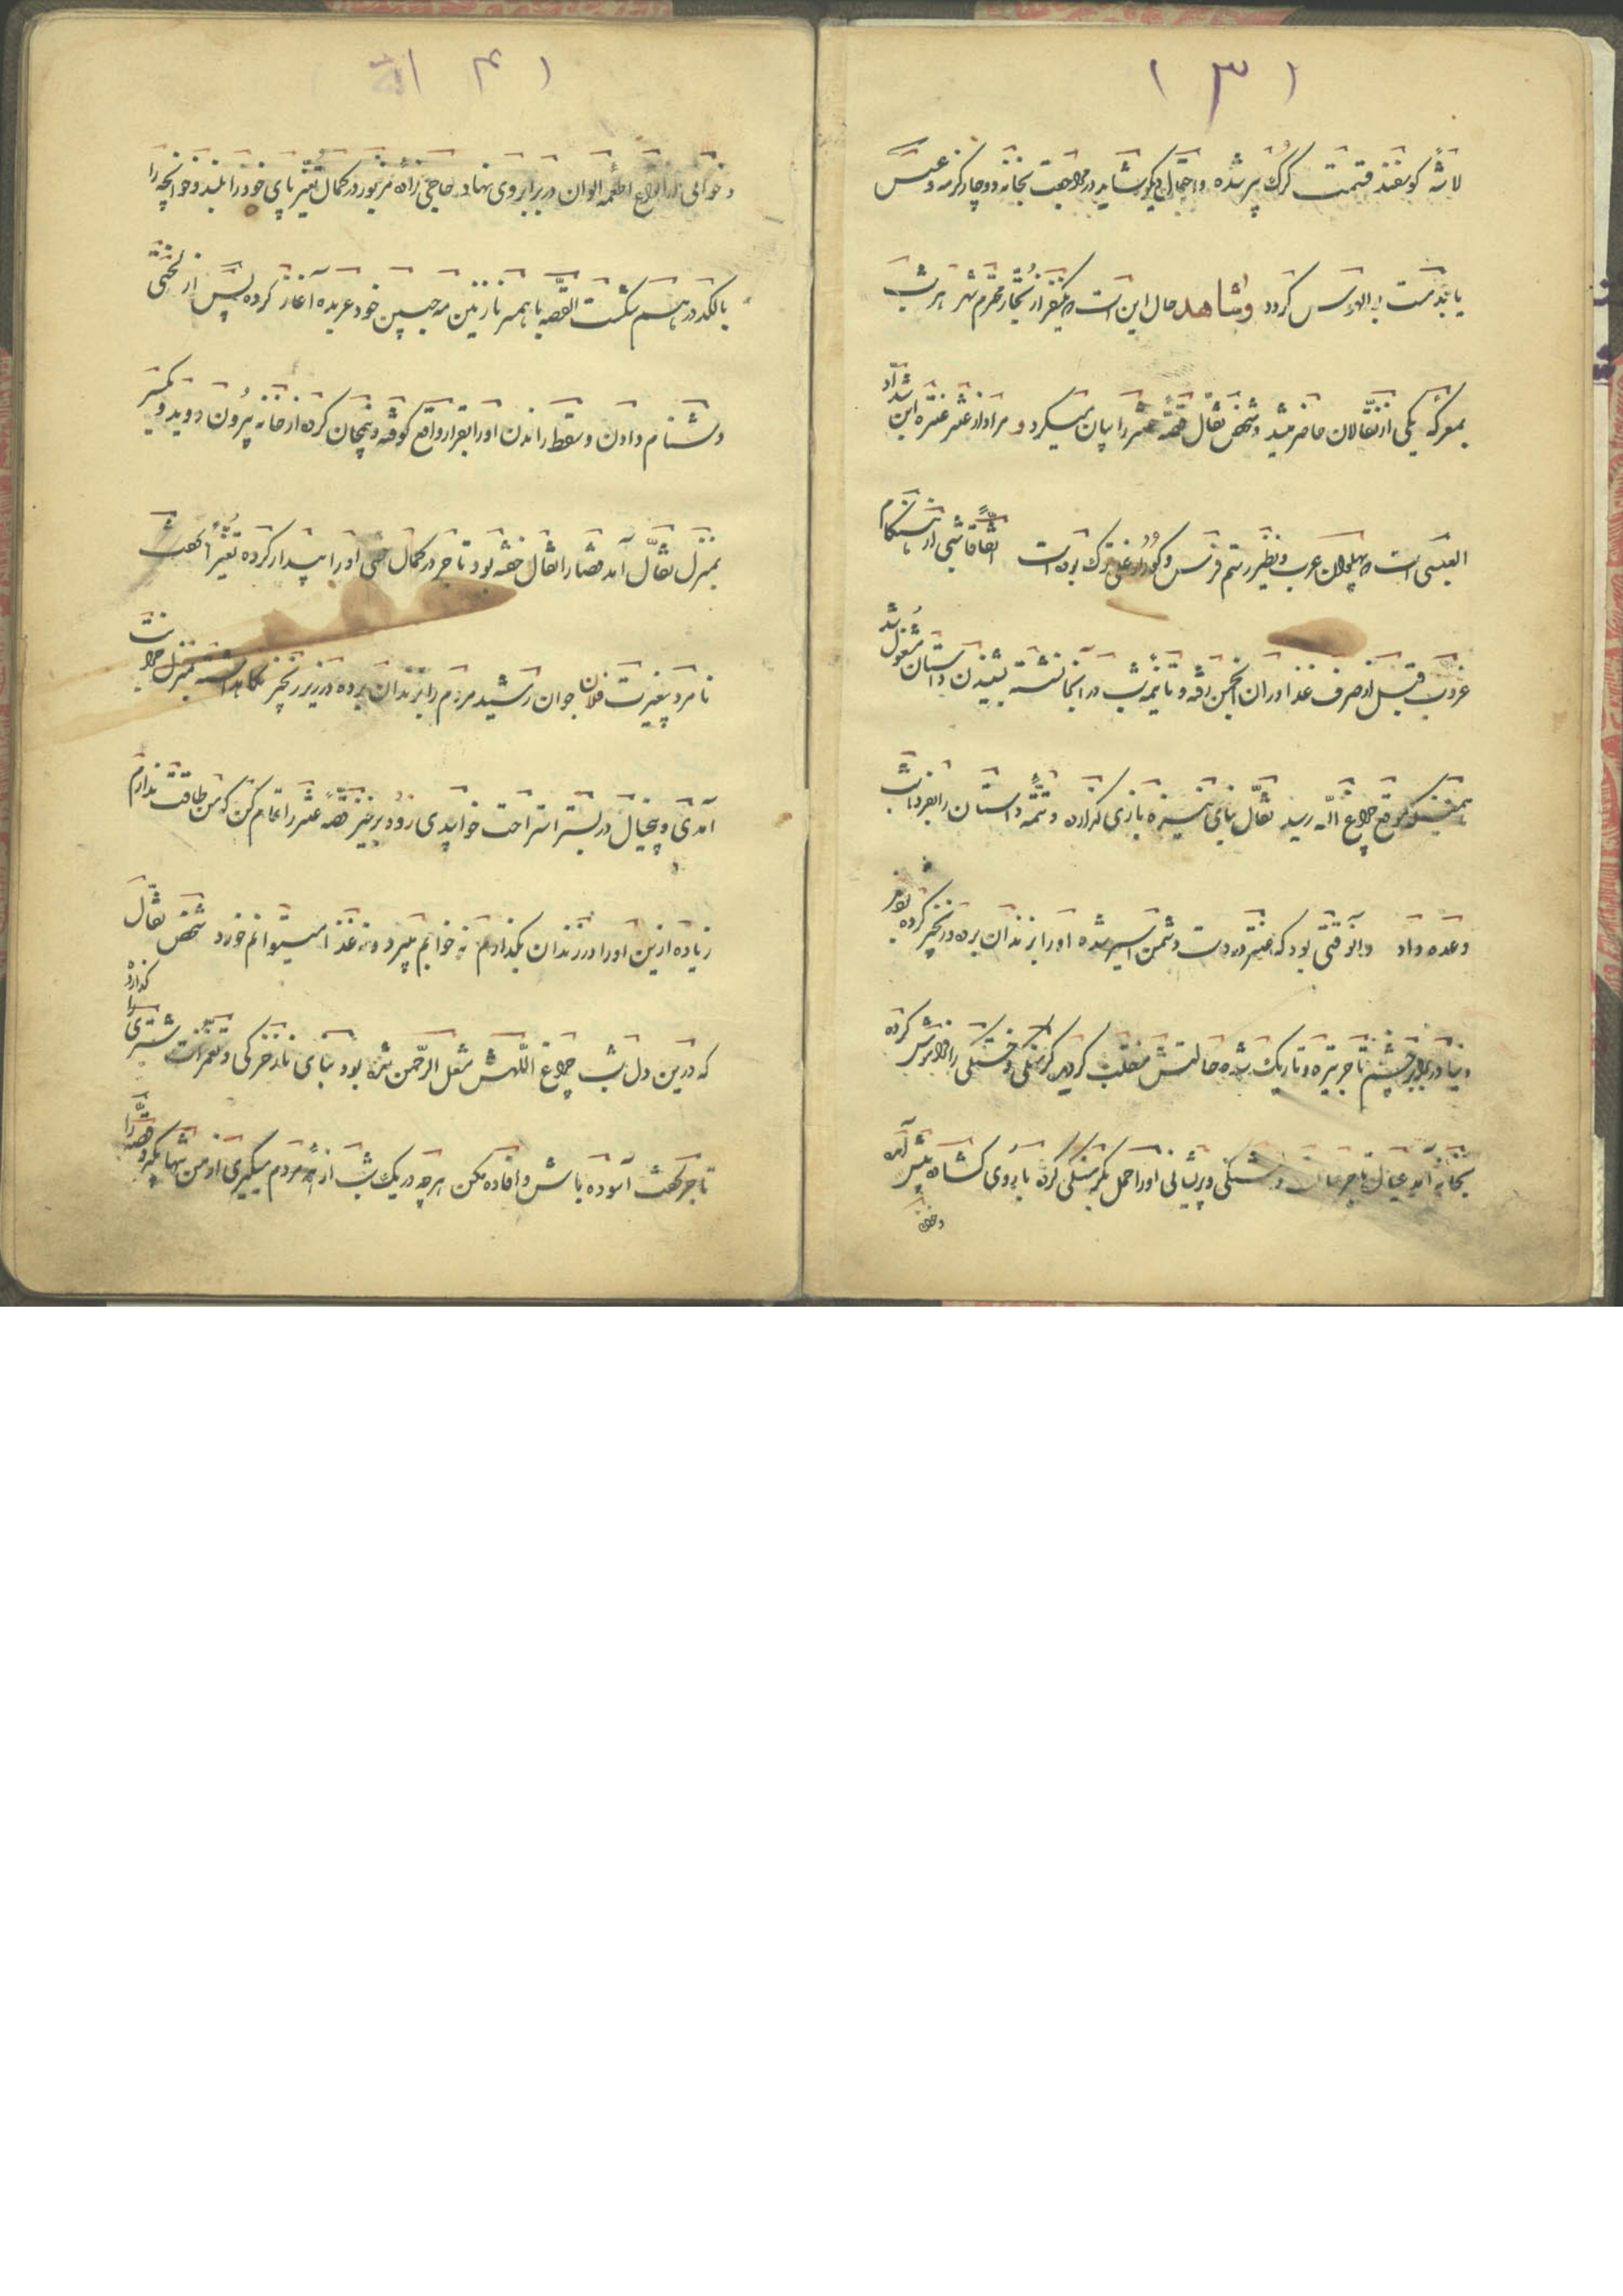 ۱۳۱
لاشه کوسفند قسمت کرک پیر شده و احتمال دیکر شاید در مراجعت بخانه دوچار کزمه و عسس
یا بدمست بوالهوس کردد و شاهد حال این است که یکنفر از تجار محترم شهر هر شب
بمعرکه یکی از نقالان حاضر میشد و شخص نقال قصه عنتر را بیان میکرد و مراد از عنتر عنتره ابن شداد
العبسی است که پهلوان عرب و نظیر رستم فرس و کوراوغلی ترک بوده است اتفاقا شبی از هنکام
غروب قبل از صرف غذا در ان انجمن رفته و تا نیمه شب در آنجا نشسته بشنیدن داستان مشغول شد
همینکه موقع چراغ الله رسید نقال بنای نیزه بازی کزارده و تتمه داستان را بفردا شب
وعده داد و آنوقتی بود که عنتر در دست دشمن اسیر شده او را بزندان برده در زنجیر کرده بودند
دنیا در برابر چشم تاجر تیره و تاریک شده حالتش منقلب کردید کرسنکی و خستکی را فراموش کرده
بخانه آمد عیال تاجر خستکی و پریشانی او را حمل بکرسنکی کرده با روی کشاده پیش آمده
و خوانی
۱۴۱
و خوانی از انواع اطعمه الوان در برابر وی نهاد حاجی زاده مزبور در کمال تغیر پای خود را بلند و خوانچه را
با لکد در هم شکست القصه با همسر نازنین مه جبین خود عربده آغاز کرده پس از لختی
دشنام دادن و سقط راندن او را بقرار واقع کوفته و نیمجان کرده از خانه بیرون دوید و یکسر
بمنزل نقال آمد قضا را نقال خفته بود تاجر در کمال سختی او را بیدار کرده تغیرا کفت
نامرد بیغیرت فلان جوان رشید مردم را بزندان برده در زیر زنجیر نکاهداشته بمنزل خودت
آمدی و بیخیال در بستر استراحت خوابیدی زود برخیز قصه عنتر را تمام کن که من طاقت ندارم
زیاده ازین او را در زندان بکذارم نه خوابم میبرد و نه غذا میتوانم خورد شخص نقال
که درین دل شب چراغ اللهش مشعل الرحمن شده بود بنای ناز خرکی و تعمزات شتری را کذارد
تاجر کفت آسوده باش و افاده مکن هر چه در یک شب از همه مردم میکیری از من تنها بکیر و قصه را